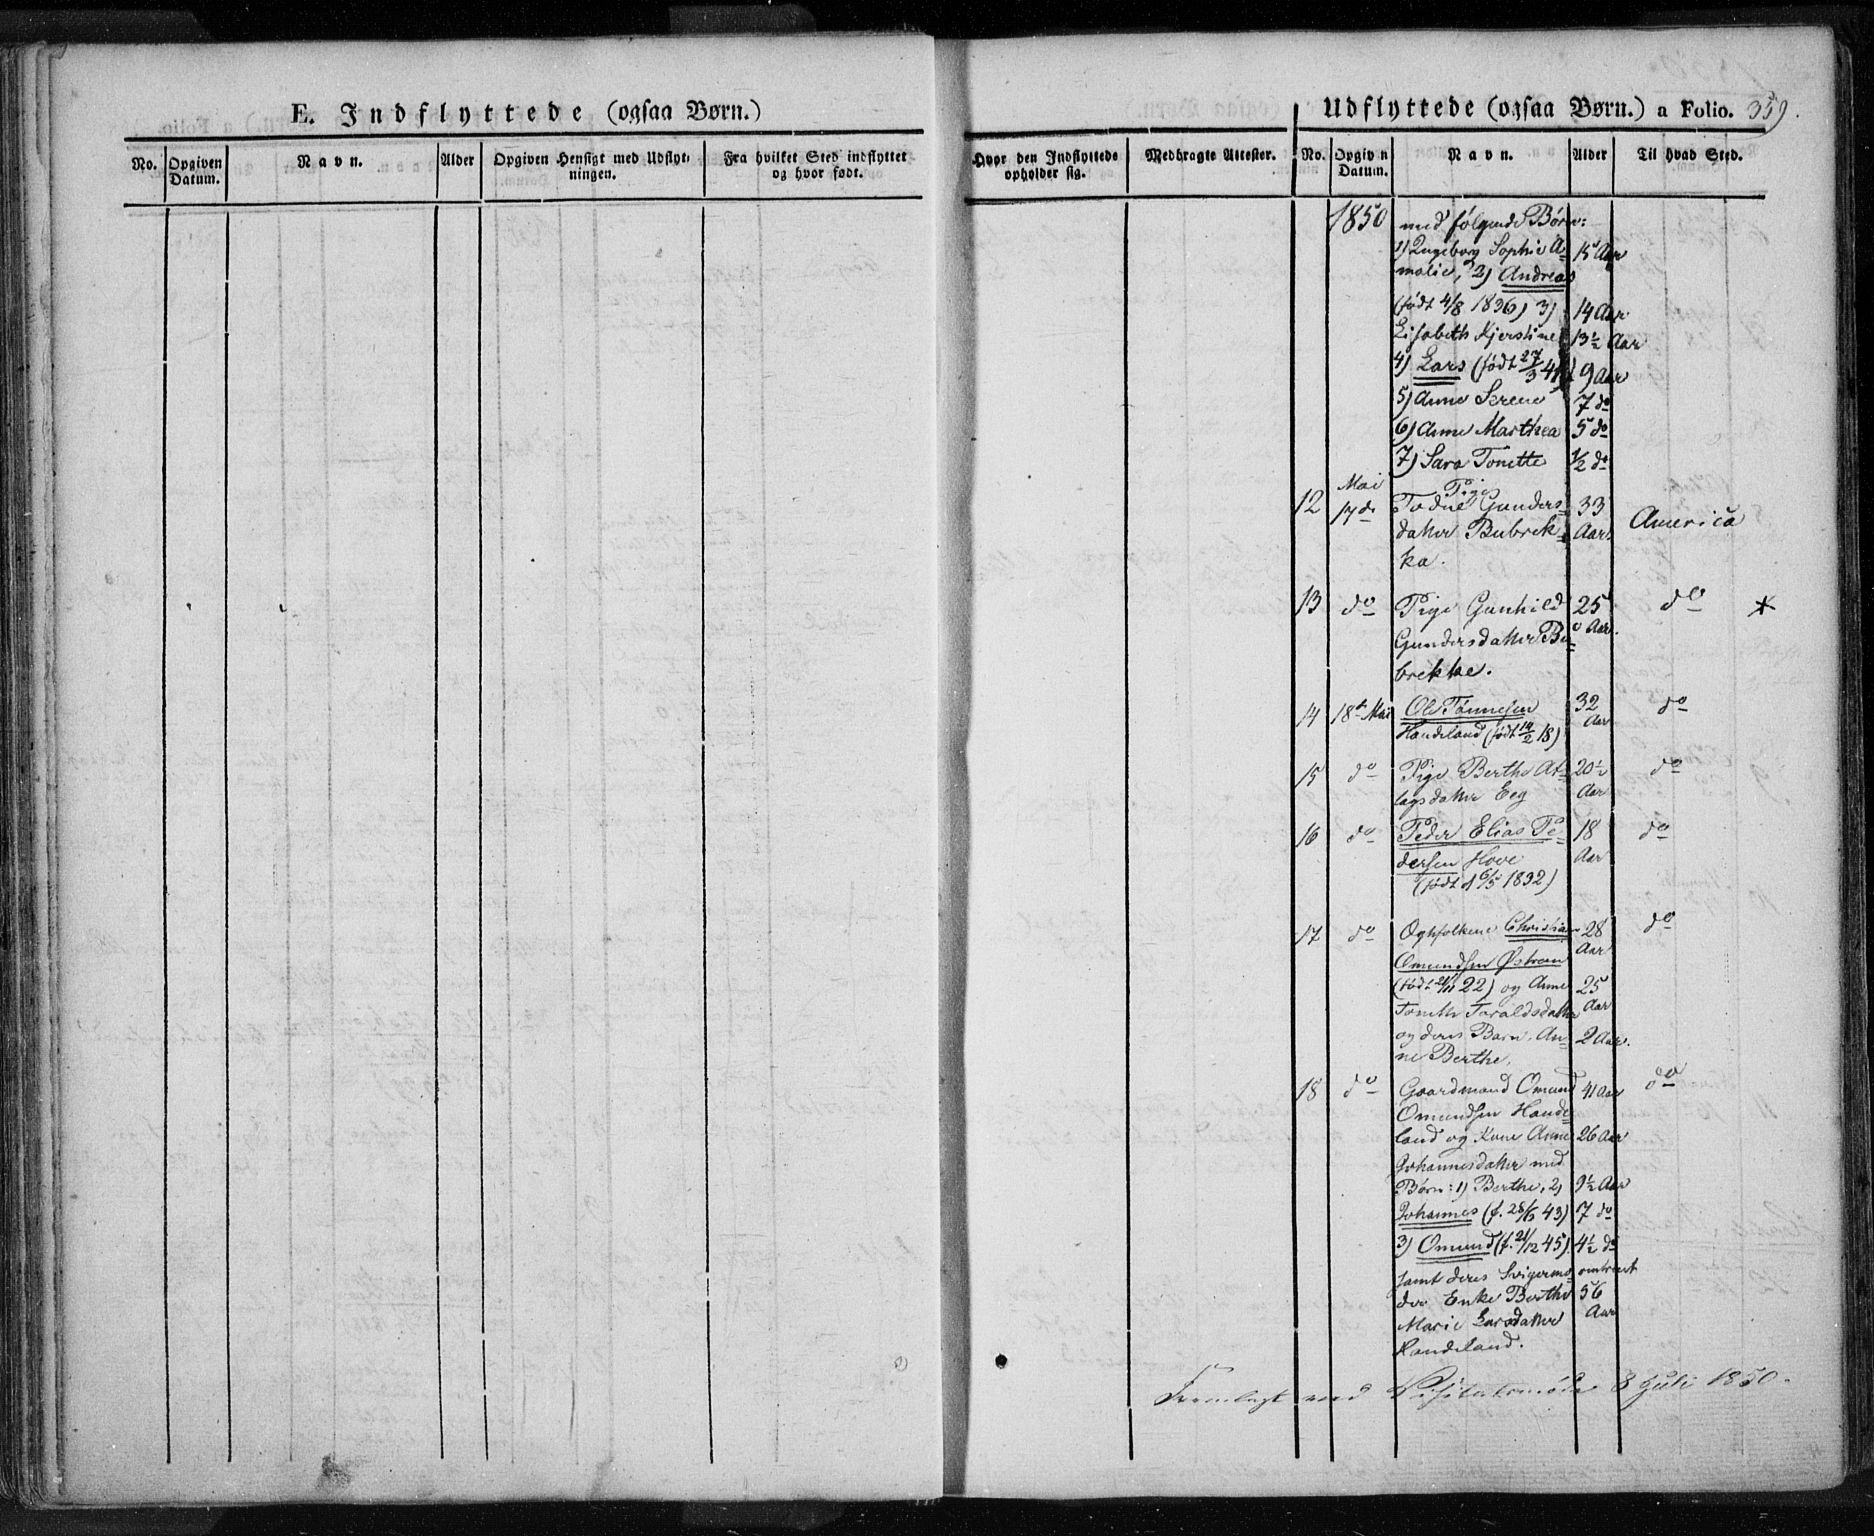 E. Indflyttede (ogsaa Børn.)
No.
Opgiven Datum.
Navn.
Alder
Opgiven Hensigt med Udflyt-
ningen.
Fra hvilket Sted indflyttet
og hvor født.
Hvor den Indflyttede
opholder sig.
Medbragte Attester.
Udflyttede (ogsaa Børn.) a Folio. 359.
No.
Opgiven
Datum.
Navn.
Alder
Til hvad Sted.
1850 med følgende Børn:
1) Ingeborg Sophie A- 15 Aar
malie, 2) Andreas
(født 4/8 1836) 3) 14 Aar
Lisabeth Kjerstine 13½ Aar
4) Lars (født 27/3 41) 9 Aar
5) Anne Serene 7 do
6) Anne Marthea 5 do
7) Sara Tonette ½ do
Mai Pige
12 17 do Todne Gunders- 33 America
datter Bubrek- Aar
ka.
13 do Pige Gunhild 25 do *
Gundersdatter Bu- Aar.
brekke.
14 18 Mai Ole Tønnesen 32 do
Handeland (født 14/2 18) Aar
15 do Pige Berthe At- 20½ do
lagsdatter Eeg Aar
16 do Peder Elias Pe- 18 do
dersen Hove Aar
(født d 6/5 1832)
17 do Egtefolkene Christian 28 do
Omundsen Østrem Aar
(født 21/11 22) og Anne 25
Tonette Toraldsdatter Aar
og deres Barn, An- 2 Aar.
ne Berthe.
18 do Gaardmand Omund 41 Aar do
Omundsen Hande-
land og Kone Anne 26 Aar
Johannesdatter med
Børn: 1) Berthe, 2) 9½ Aar
Johannes (f. 28/5 43) 7 do
3) Omund (f. 21/12 45) 4½ do
samt deres Svigermo- omtrent
der Enke Berthe 56
Marie Larsdatter Aar
Handeland.
Fremlagt ved Visitatsmøde 8 Juli 1850.